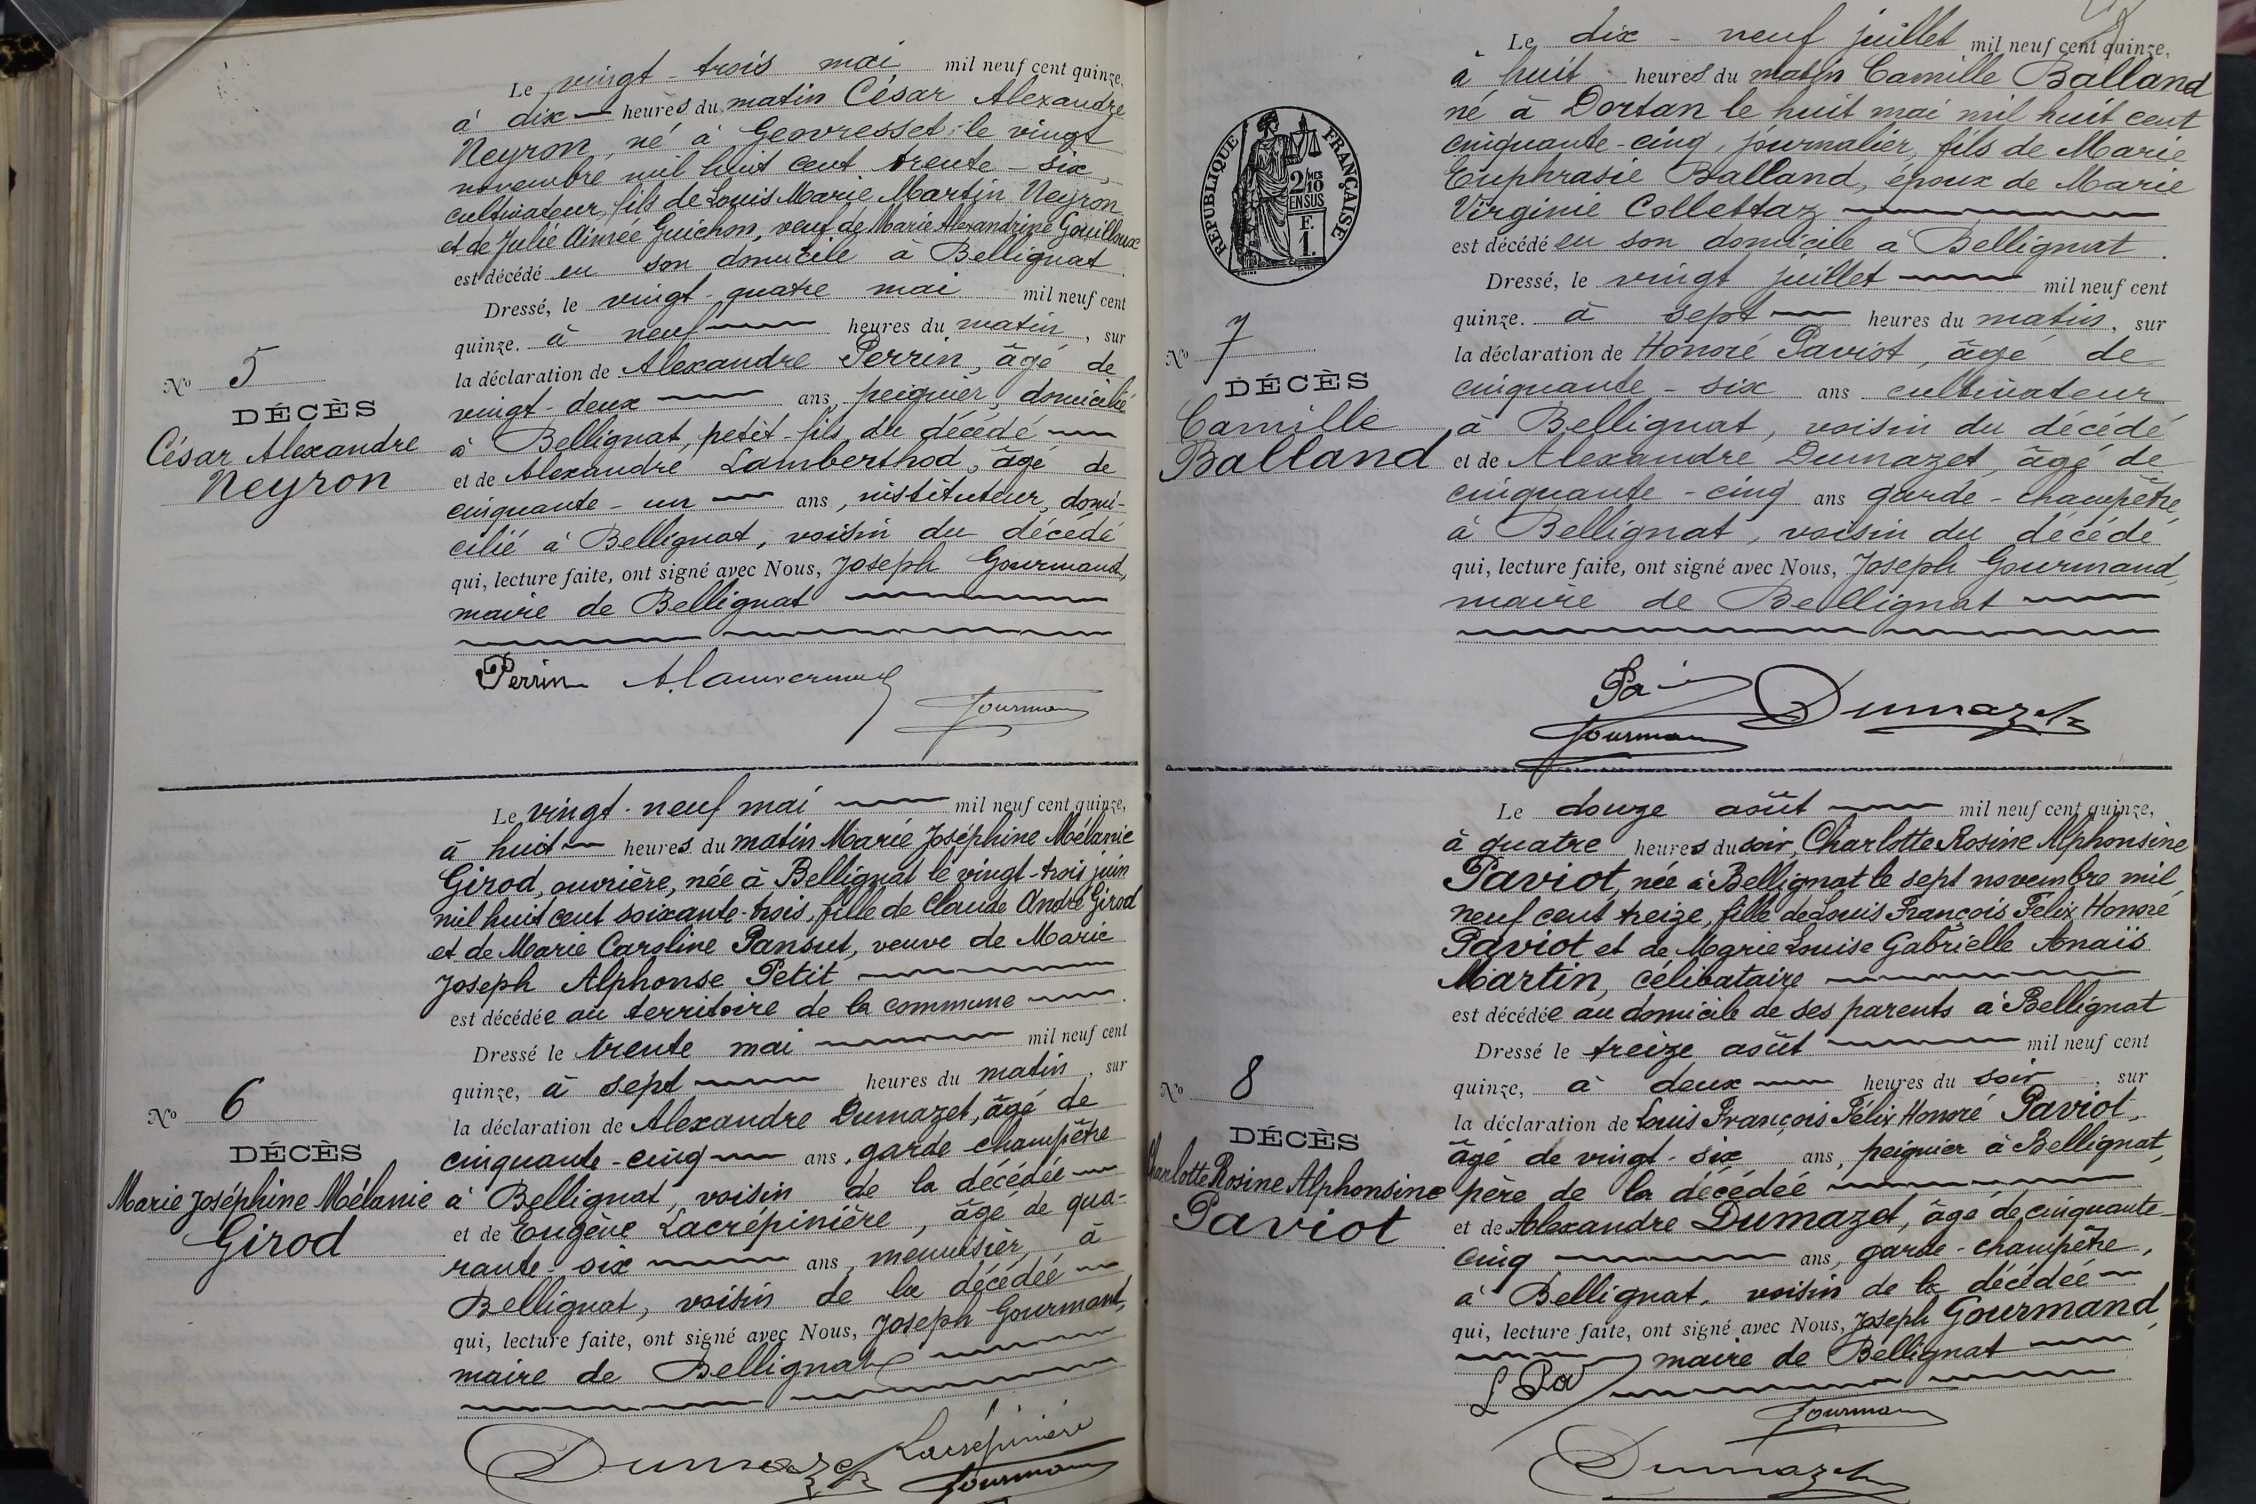 Le vingt-trois mai mil neuf cent quinze,
à dix heures du matin César Alexandre
Neyron, né à Geovresset, le vingt
novembre mil huit cent trente-six,
cultivateur, fils de Louis Marie Martin Neyron
et de Julie Aimée Guichon, veuf de Marie Alexandrine Gouilloux
est décédé en son domicile à Bellignat.
Dressé, le vingt-quatre mai mil neuf cent
quinze. à neuf heures du matin, sur
la déclaration de Alexandre Perrin, âgé de
vingt-deux ans, peignier, domicilié
à Bellignat, petit-fils du décédé
et de Alexandre Lamberthod, âgé de
cinquante-un ans, instituteur, domi-
cilié à Bellignat, voisin du décédé
qui, lecture faite, ont signé avec Nous, Joseph Gourmand,
maire de Bellignat
Perrin
Gourmand
No 5
DÉCÈS
César Alexandre
Neyron
Le vingt-neuf mai mil neuf cent quinze,
à huit heures du matin Marie Joséphine Mélanie
Girod, ouvrière, née à Bellignat le vingt-trois juin
mil huit cent soixante-trois, fille de Claude André Girod
et de Marie Caroline Pansut, veuve de Marie
Joseph Alphonse Petit
est décédée au territoire de la commune.
Dressé le trente mai mil neuf cent
quinze, à sept heures du matin, sur
la déclaration de Alexandre Dumazet, âgé de
cinquante-cinq ans, garde-champêtre
à Bellignat, voisin de la décédée
et de Eugène Lacrépinière, âgé de qua-
rante-six ans, menuisier, à
Bellignat, voisin de la décédée
qui, lecture faite, ont signé avec Nous, Joseph Gourmand,
maire de Bellignat
Dumazet Lacrépinière
Gourmand
No 6
DÉCÈS
Marie Joséphine Mélanie
Girod
RÉPUBLIQUE FRANÇAISE
2 MES
10
EN SUS
F.
1.
Le dix-neuf juillet mil neuf cent quinze,
à huit heures du matin Camille Balland
né à Dortan le huit mai mil huit cent
cinquante-cinq, journalier, fils de Marie
Euphrasie Balland, époux de Marie
Virginie Collettaz
est décédé en son domicile à Bellignat.
Dressé, le vingt juillet mil neuf cent
quinze. à sept heures du matin, sur
la déclaration de Honoré Paviot, âgé de
cinquante-six ans cultivateur
à Bellignat, voisin du décédé
et de Alexandre Dumazet, âgé de
cinquante-cinq ans garde-champêtre,
à Bellignat, voisin du décédé
qui, lecture faite, ont signé avec Nous, Joseph Gourmand,
maire de Bellignat
Dumazet
Gourmand
No 7
DÉCÈS
Camille
Balland
Le douze août mil neuf cent quinze,
à quatre heures du soir, Charlotte Rosine Alphonsine
Paviot, née à Bellignat le sept novembre mil
neuf cent treize, fille de Louis François Félix Honoré
Paviot et de Marie Louise Gabrielle Anaïs
Martin, célibataire
est décédée au domicile de ses parents à Bellignat
Dressé le treize août mil neuf cent
quinze, à deux heures du soir, sur
la déclaration de Louis François Félix Honoré Paviot,
âgé de vingt-six ans, peignier à Bellignat,
père de la décédée
et de Alexandre Dumazet, âgé de cinquante-
cinq ans, garde-champêtre,
à Bellignat, voisin de la décédée
qui, lecture faite, ont signé avec Nous, Joseph Gourmand,
maire de Bellignat
Gourmand
Dumazet
No 8
DÉCÈS
Charlotte Rosine Alphonsine
Paviot